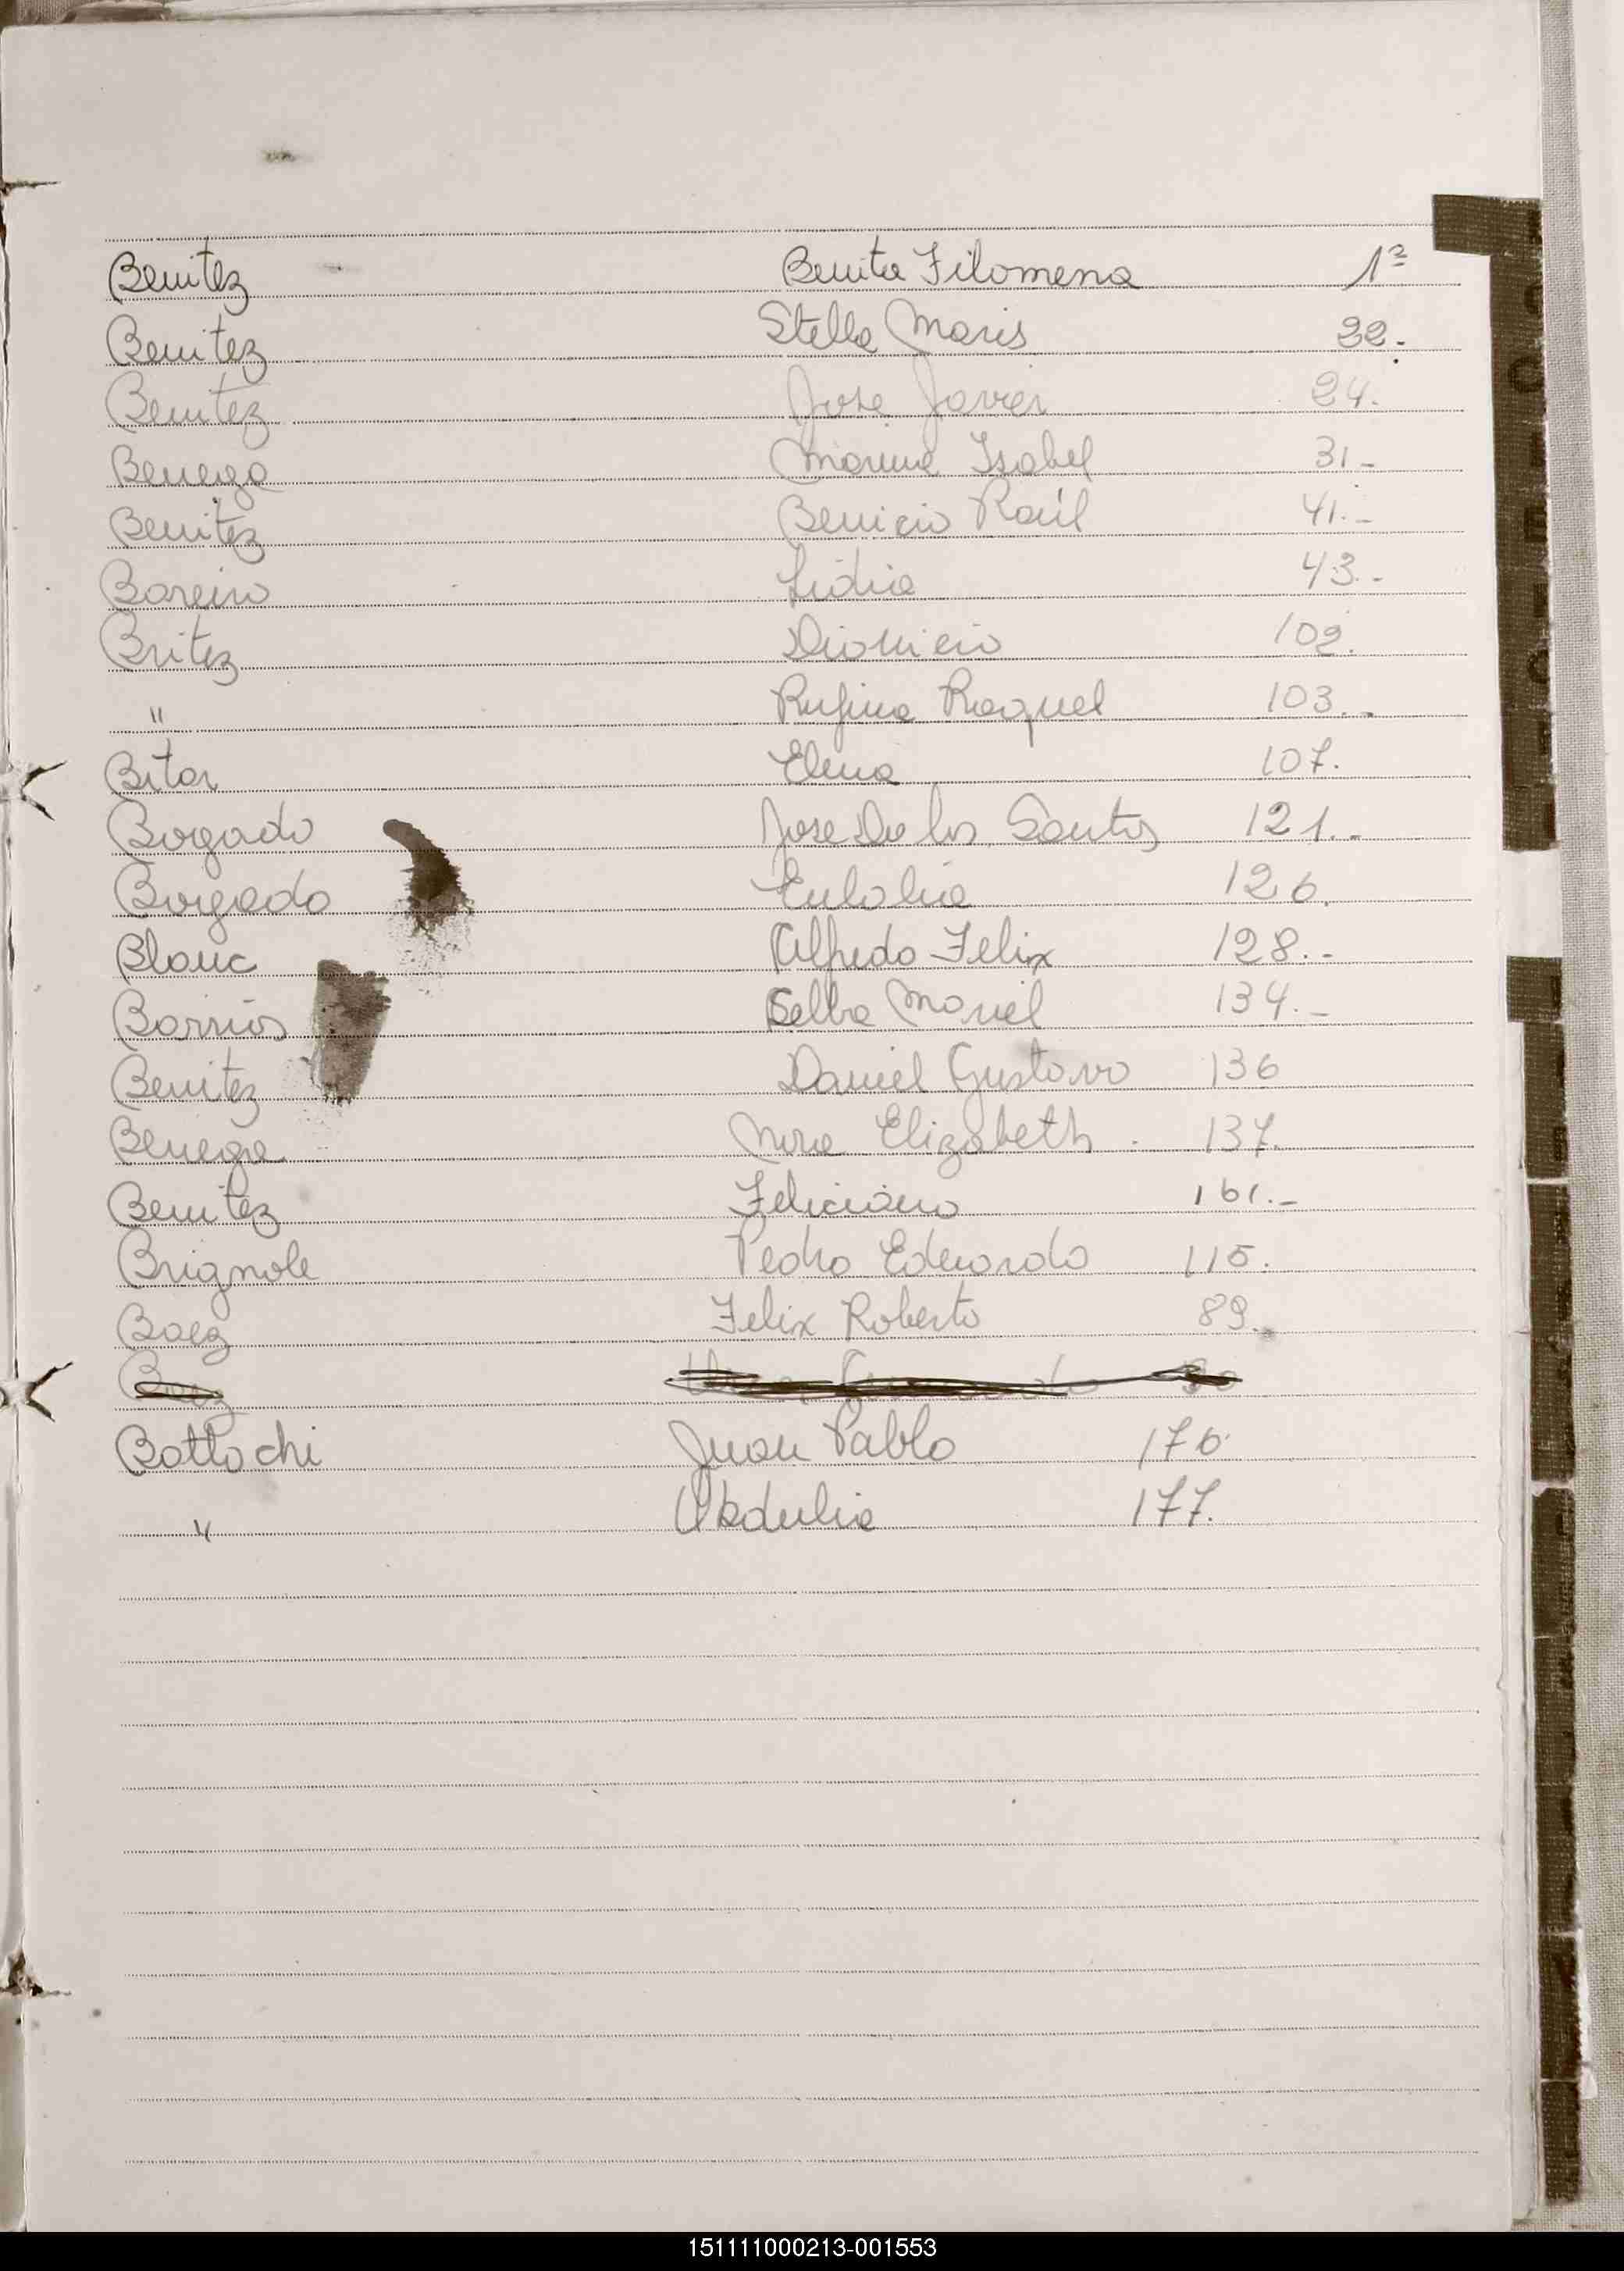 Benitez Benita Filomena 1ª
Benitez Stella Maris 22.
Benitez Jose Javier 24.
Benega Isabel 31.-
Benitez Benicio Raúl 41.-
Bareiro Lidia 43.-
Britez Dionicio 102.
" Rufina Raquel 103.-
Bitar Elena 107.
Bogado Jose De los Santos 121.-
Bogado Eulalia 126.
Blanc Alfredo Felix 128.-
Barrios Mariel 134.-
Benitez Daniel Gustavo 136
Benega Elizabeth 137.
Benitez Feliciano 161.-
Brignole Pedro Eduardo 115.
Baez Felix Roberto 89.
Baez
Battochi Juan Pablo 176
" Obdulia 177.
151111000213-001553